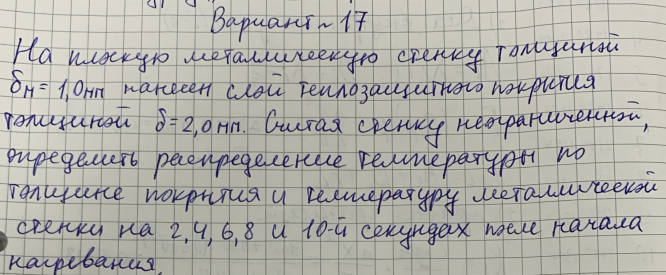 Вариант~ 17
На плоскую металлическую стенку толщиной
δн = 1,0нп нанесен слой теплозащитного покрытия
толщиной δ = 2,0нп. Считая стенку неограниченной,
определить распределение температуры по
толщине покрытия и температуру металлической
стенки на 2,4,6,8 и 10-й секундах после начала
нагревания.